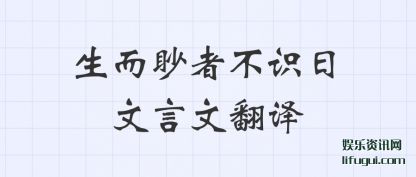 生而眇者不识日
文言文翻译
娱乐资讯网
lifugui.com